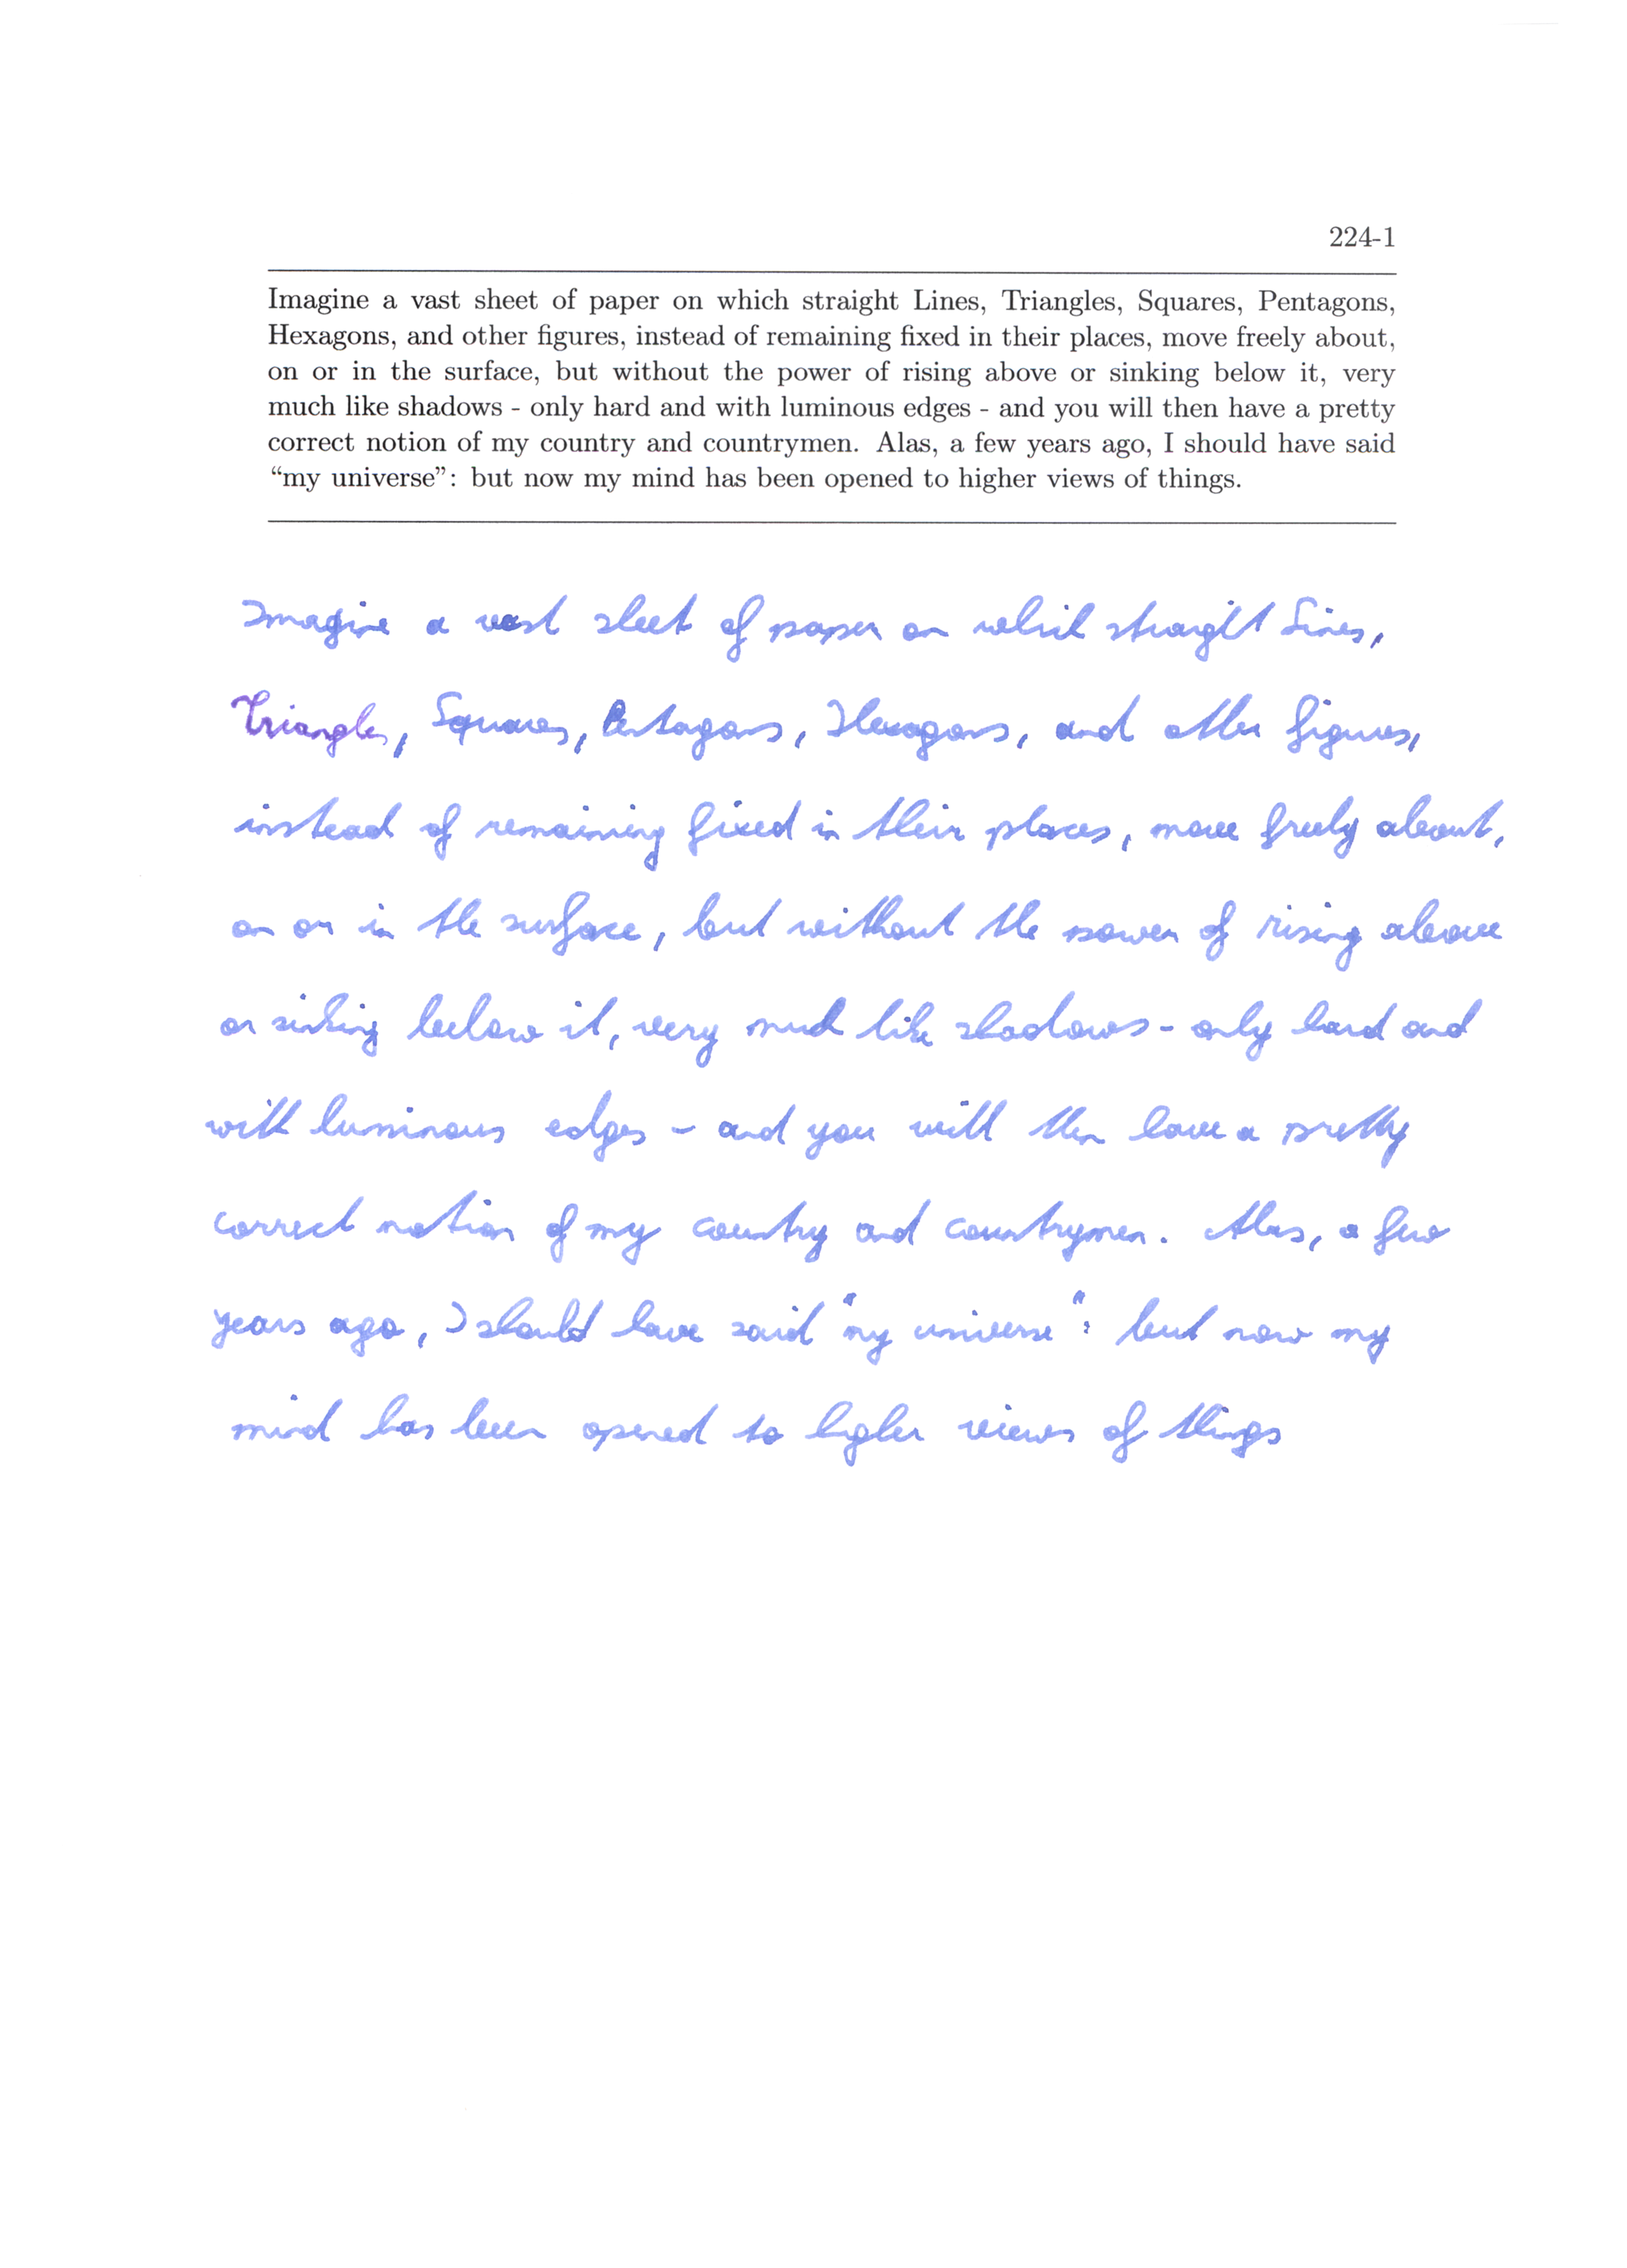 224-1
Imagine a vast sheet of paper on which straight Lines, Triangles, Squares, Pentagons,
Hexagons, and other figures, instead of remaining fixed in their places, move freely about,
on or in the surface, but without the power of rising above or sinking below it, very
much like shadows - only hard and with luminous edges - and you will then have a pretty
correct notion of my country and countrymen. Alas, a few years ago, I should have said
“my universe”: but now my mind has been opened to higher views of things.
Imagine a vast sheet of paper on which straight Lines,
Triangles, Squares, Pentagons, Hexagons, and other figures,
instead of remaining fixed in their places, move freely about,
on or in the surface, but without the power of rising above
or sinking below it, very much like shadows - only hard and
with luminous edges - and you will then have a pretty
correct notion of my country and countrymen. Alas, a few
years ago, I should have said "my universe": but now my
mind has been opened to higher views of things